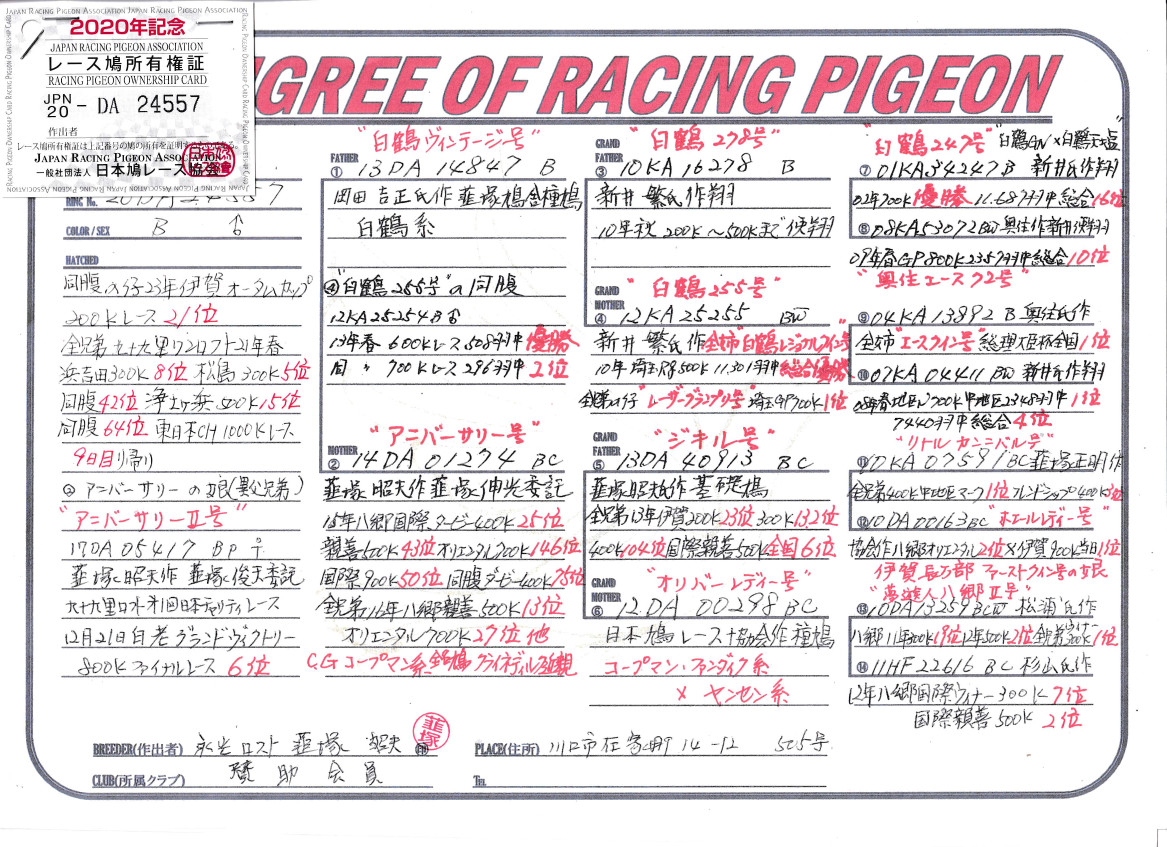 JAPAN RACING PIGEON ASSOCIATION JAPAN RACING PIGEON ASSOCIATION
2020年記念
JAPAN RACING PIGEON ASSOCIATION
レース鳩所有権証
RACING PIGEON OWNERSHIP CARD
JPN 20 - DA 24557
作出者
レース鳩所有権証は上記番号の鳩の所有を証明するものである。
JAPAN RACING PIGEON ASSOCIATION
一般社団法人 日本鳩レース協会
IGREE OF RACING PIGEON
RING No.
COLOR / SEX B ♂
HATCHED
同腹の仔23年伊賀オータムカップ
200Kレース 21位
全兄弟九十九里ワンロフト21年春
浜吉田300K 8位 松島300K 5位
同腹42位 浄土ヶ浜500K 15位
同腹64位 東日本CH1000Kレース
9日目り帰り
アニバーサリーの娘(異父兄弟)
"アニバーサリーⅡ号"
17DA05417 BP ♀
韮塚昭夫作 韮塚俊夫委託
九十九里ロフト第1回日本チャリティレース
12月21日白老グランドヴィクトリー
800Kファイナルレース 6位
"白鶴ヴィンテージ号"
FATHER ① 13DA14847 B
岡田吉正氏作 韮塚鳩舎種鳩
白鶴系
④"白鶴255号"の同腹
12KA25254B♂
13年春 600Kレース508羽中優勝
同 〃 700Kレース296羽中2位
"アニバーサリー号"
MOTHER ② 14DA01274 BC
韮塚昭夫作 韮塚伸光委託
15年八郷国際ダービー400K 25位
親善500K 43位 オリエンタル700K 146位
国際900K 50位 同腹ダービー400K 75位
全兄弟16年八郷親善500K 13位
オリエンタル700K 27位他
C,Gコープマン系
"白鶴278号"
GRAND FATHER ③ 10KA16278 B
新井繁氏作翔
10年秋200K〜500Kまで使翔
"白鶴255号"
GRAND MOTHER ④ 12KA25255 BW
新井繁氏作 全姉白鶴レジョナルクイン号
10年埼玉Rg500K 11.301羽中総合優勝
全兄弟の仔"レーザーグランプリ号"埼玉GP700K 1位
"ジキル号"
GRAND FATHER ⑤ 13DA40913 BC
韮塚昭夫作 基礎鳩
全兄弟13年伊賀200K 23位 300K 132位
400K 104位 国際親善500K 全国6位
"オリバーレディー号"
GRAND MOTHER ⑥ 12DA00298 BC
日本鳩レース協会作種鳩
コープマン・ファンダイク系
× ヤンセン系
"白鶴247号" 白鶴GN×白鶴天塩
⑦ 01KA34247 B 新井氏作翔
02年700K優勝 11.687羽中総合16位
⑧ 08KA53072 BW 奥住作新井使翔
09年春GP800K 2357羽中総合10位
"奥住エース72号"
⑨ 04KA13892 B 奥住氏作
全姉"エースクイン号"総理大臣杯全国1位
⑩ 07KA04411 BW 新井氏作翔
08年春地区N700K中地区2348羽中1位
7440羽中総合4位
"リトルカンニバル号"
⑪ 10KA07591 BC 韮塚正明作
全兄弟400K中地区マーク1位 フレンドシップ400K 3位
⑫ 10DA00163 BC "ホエールレディー号"
協会作八郷オリエンタル2位×伊賀900K当日1位
伊賀長万部ファーストクイン号の娘
"夢遊人八郷Ⅱ号"
⑬ 10DA13259 BCW 松浦氏作
八郷11年300K 19位 12年500K 2位 全兄弟300K 1位
⑭ 11HF22616 BC 杉山氏作
12年八郷国際ウィナー300K 7位
国際親善500K 2位
BREEDER(作出者) 永生ロフト 韮塚昭夫 韮塚 ㊞
PLACE(住所) 川口市在家町14-12 505号
CLUB(所属クラブ) 賛助会員
TEL